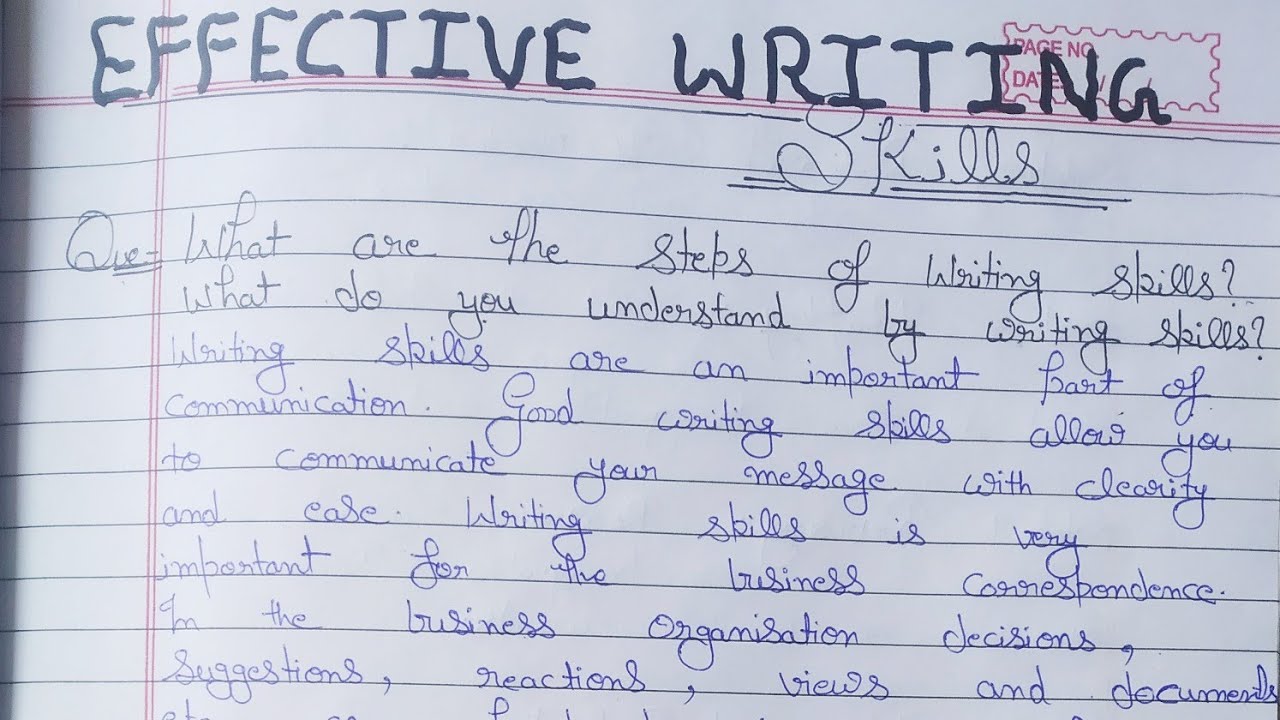 EFFECTIVE WRITING
PAGE NO
DATE
Skills
Que- What are the steps of writing skills?
What do you understand by writing skills?
Writing skills are an important part of
communication. Good writing skills allow you
to communicate your message with clearity
and ease. Writing skills is very
important for the business correspondence.
In the business organisation decisions,
suggestions, reactions, views and documents